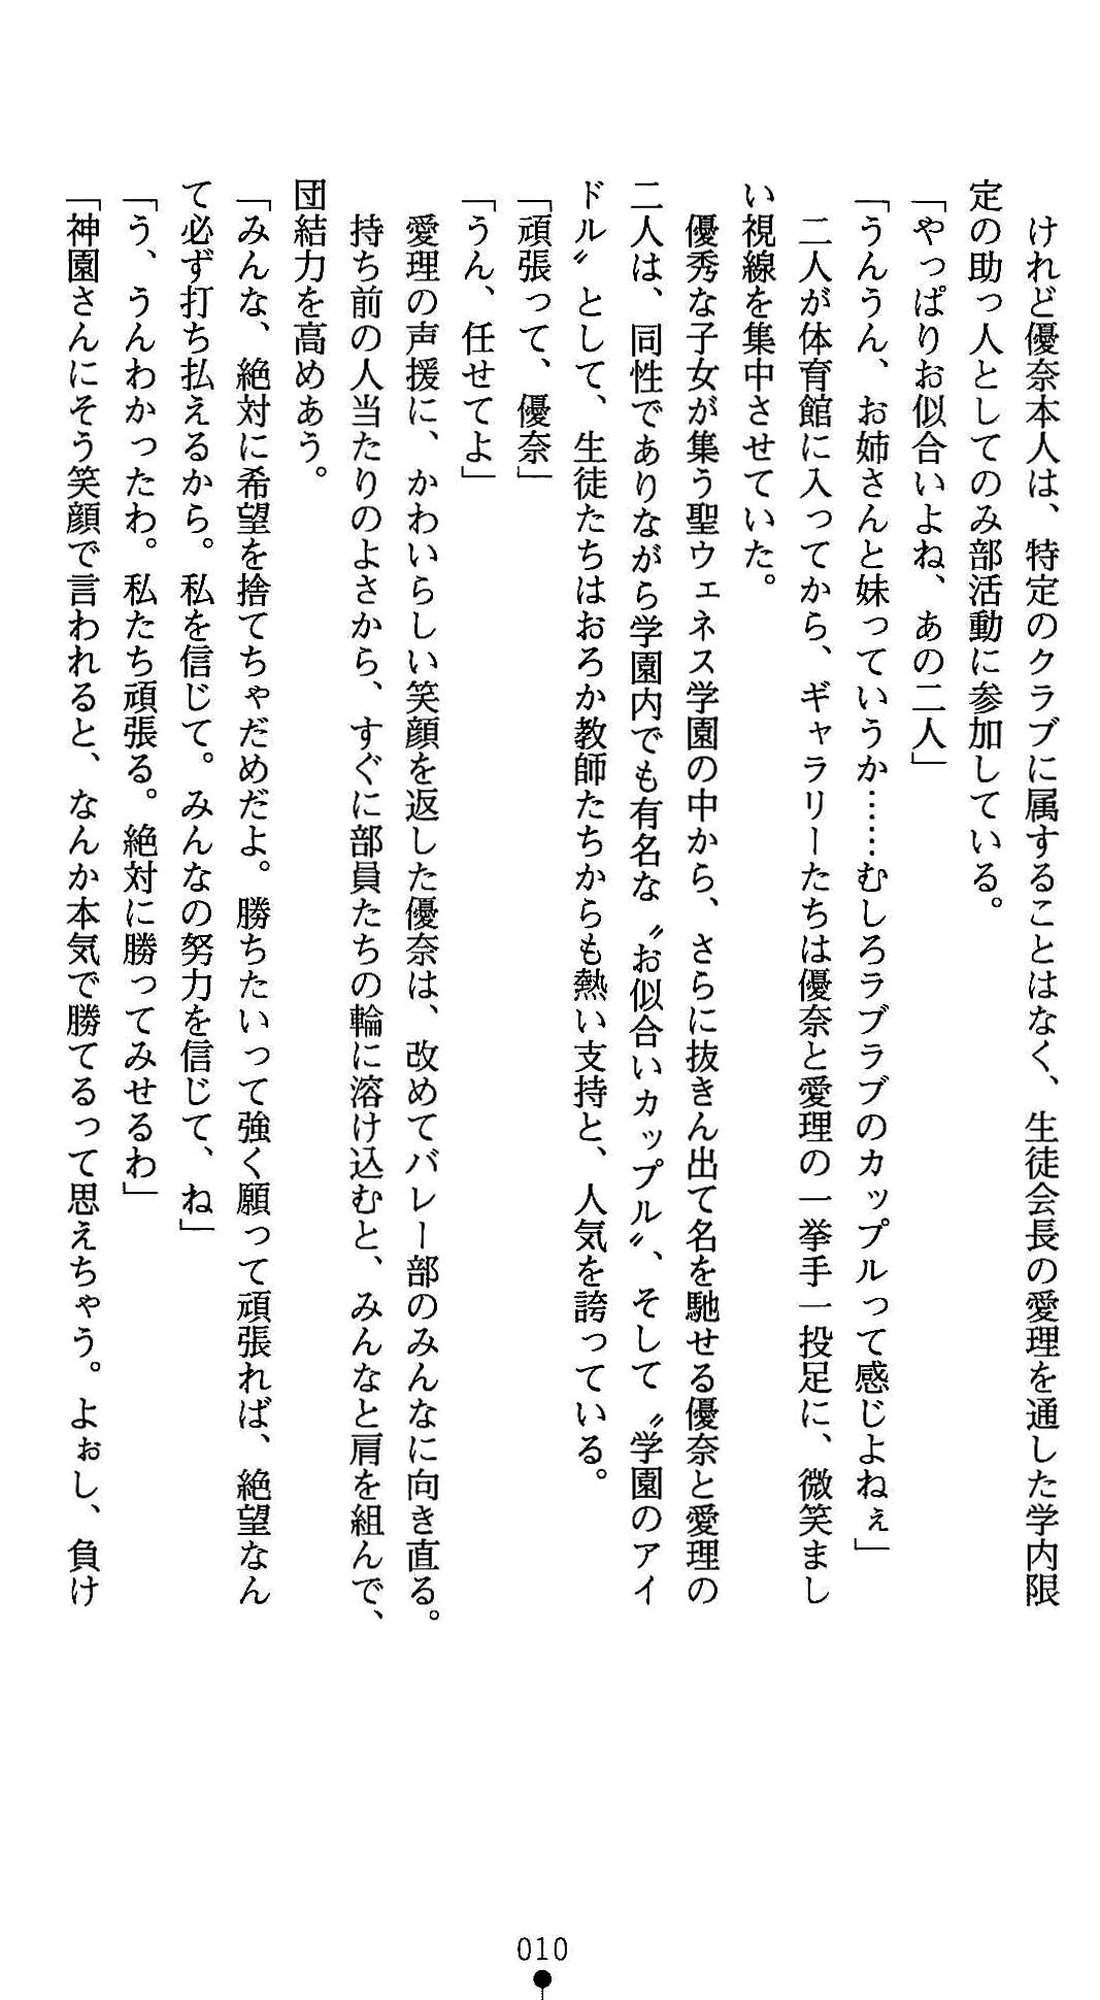 けれど優奈本人は、特定のクラブに属することはなく、生徒会長の愛理を通した学内限
定の助っ人としてのみ部活動に参加している。
「やっぱりお似合いよね、あの二人」
「うんうん、お姉さんと妹っていうか……むしろラブラブのカップルって感じよねぇ」
二人が体育館に入ってから、ギャラリーたちは優奈と愛理の一挙手一投足に、微笑まし
い視線を集中させていた。
優秀な子女が集う聖ウェネス学園の中から、さらに抜きん出て名を馳せる優奈と愛理の
二人は、同性でありながら学園内でも有名な〝お似合いカップル〟、そして〝学園のアイ
ドル〟として、生徒たちはおろか教師たちからも熱い支持と、人気を誇っている。
「頑張って、優奈」
「うん、任せてよ」
愛理の声援に、かわいらしい笑顔を返した優奈は、改めてバレー部のみんなに向き直る。
持ち前の人当たりのよさから、すぐに部員たちの輪に溶け込むと、みんなと肩を組んで、
団結力を高めあう。
「みんな、絶対に希望を捨てちゃだめだよ。勝ちたいって強く願って頑張れば、絶望なん
て必ず打ち払えるから。私を信じて。みんなの努力を信じて、ね」
「う、うんわかったわ。私たち頑張る。絶対に勝ってみせるわ」
「神園さんにそう笑顔で言われると、なんか本気で勝てるって思えちゃう。よぉし、負け
010